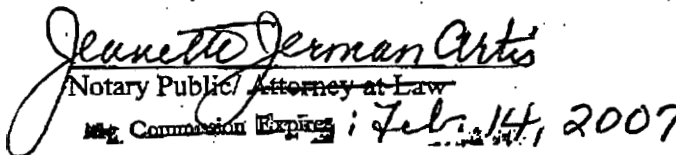 Jeanette Jerman Artis
Notary Public/ Attorney at Law
My Commission Expires : Feb. 14, 2007